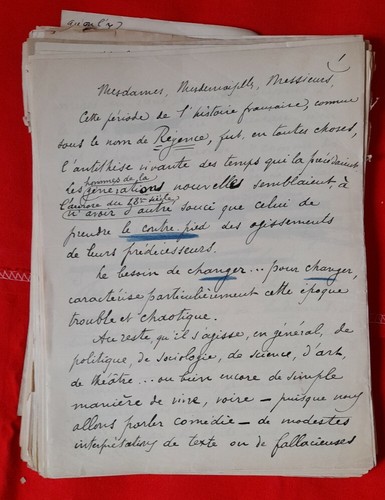 1
Mesdames, Mesdemoiselles, Messieurs,
Cette période de l'histoire française, connue
sous le nom de Régence, fut, en toutes choses,
l'antithèse vivante des temps qui la précédaient
hommes de la
Les générations nouvelles semblaient, à
l'aurore du 18e siècle,
n'avoir d'autre souci que celui de
prendre le contre-pied des agissements
de leurs prédécesseurs.
Le besoin de changer... pour changer,
caractérise particulièrement cette époque
trouble et chaotique.
Au reste, qu'il s'agisse, en général, de
politique, de sociologie, de science, d'art,
de théâtre... ou bien encore de simple
manière de vivre, voire - puisque nous
allons parler comédie - de modestes
interprétations de texte ou de fallacieuses